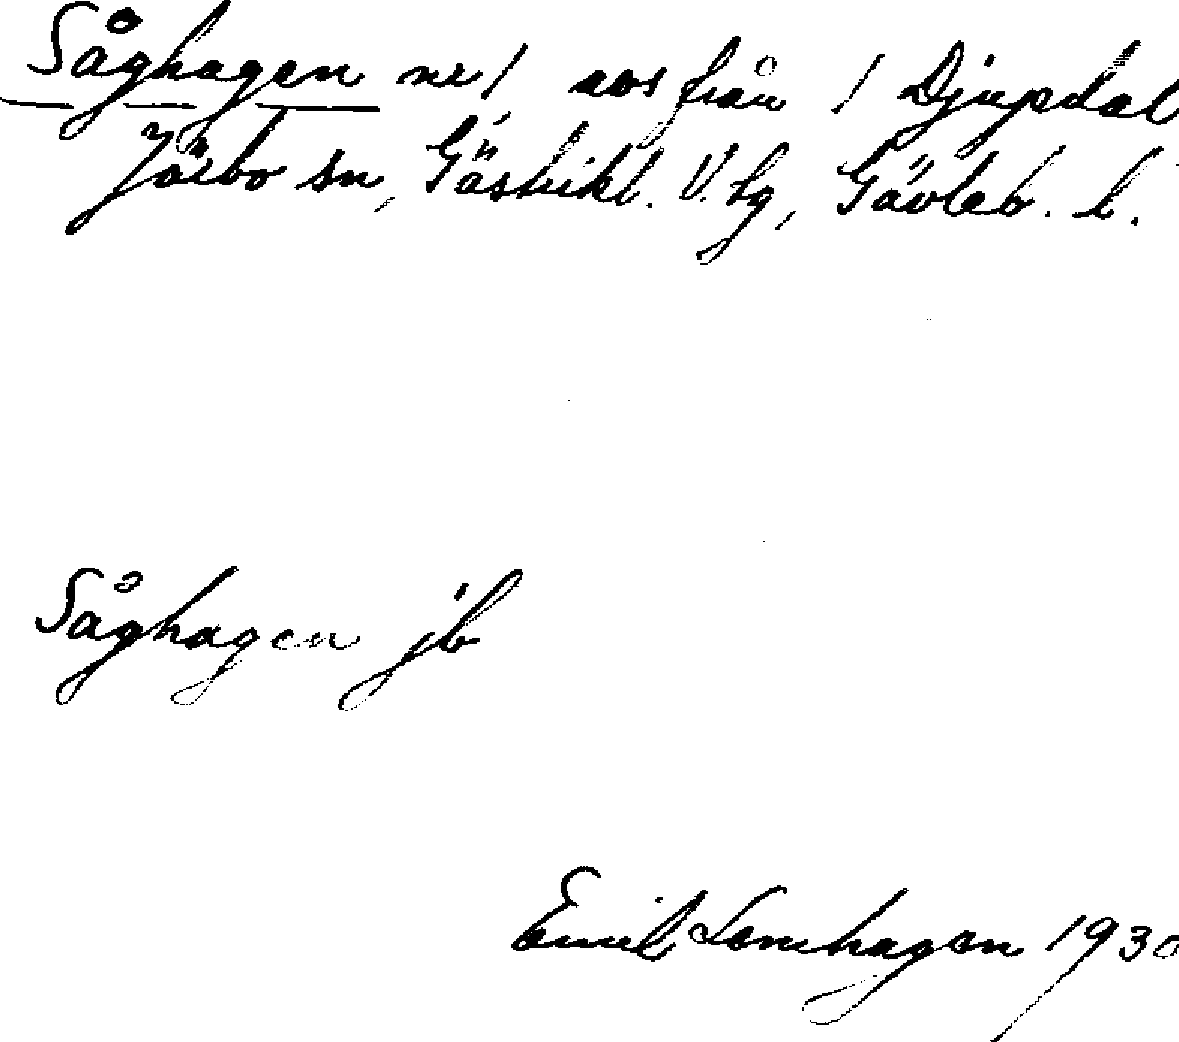 Såghagen nr 1, avs från 1 Djupdal
Järbo sn, Gästrikl. V. hg, Gävleb. l.
Såghagen jb
Emil Lennhagen 1930